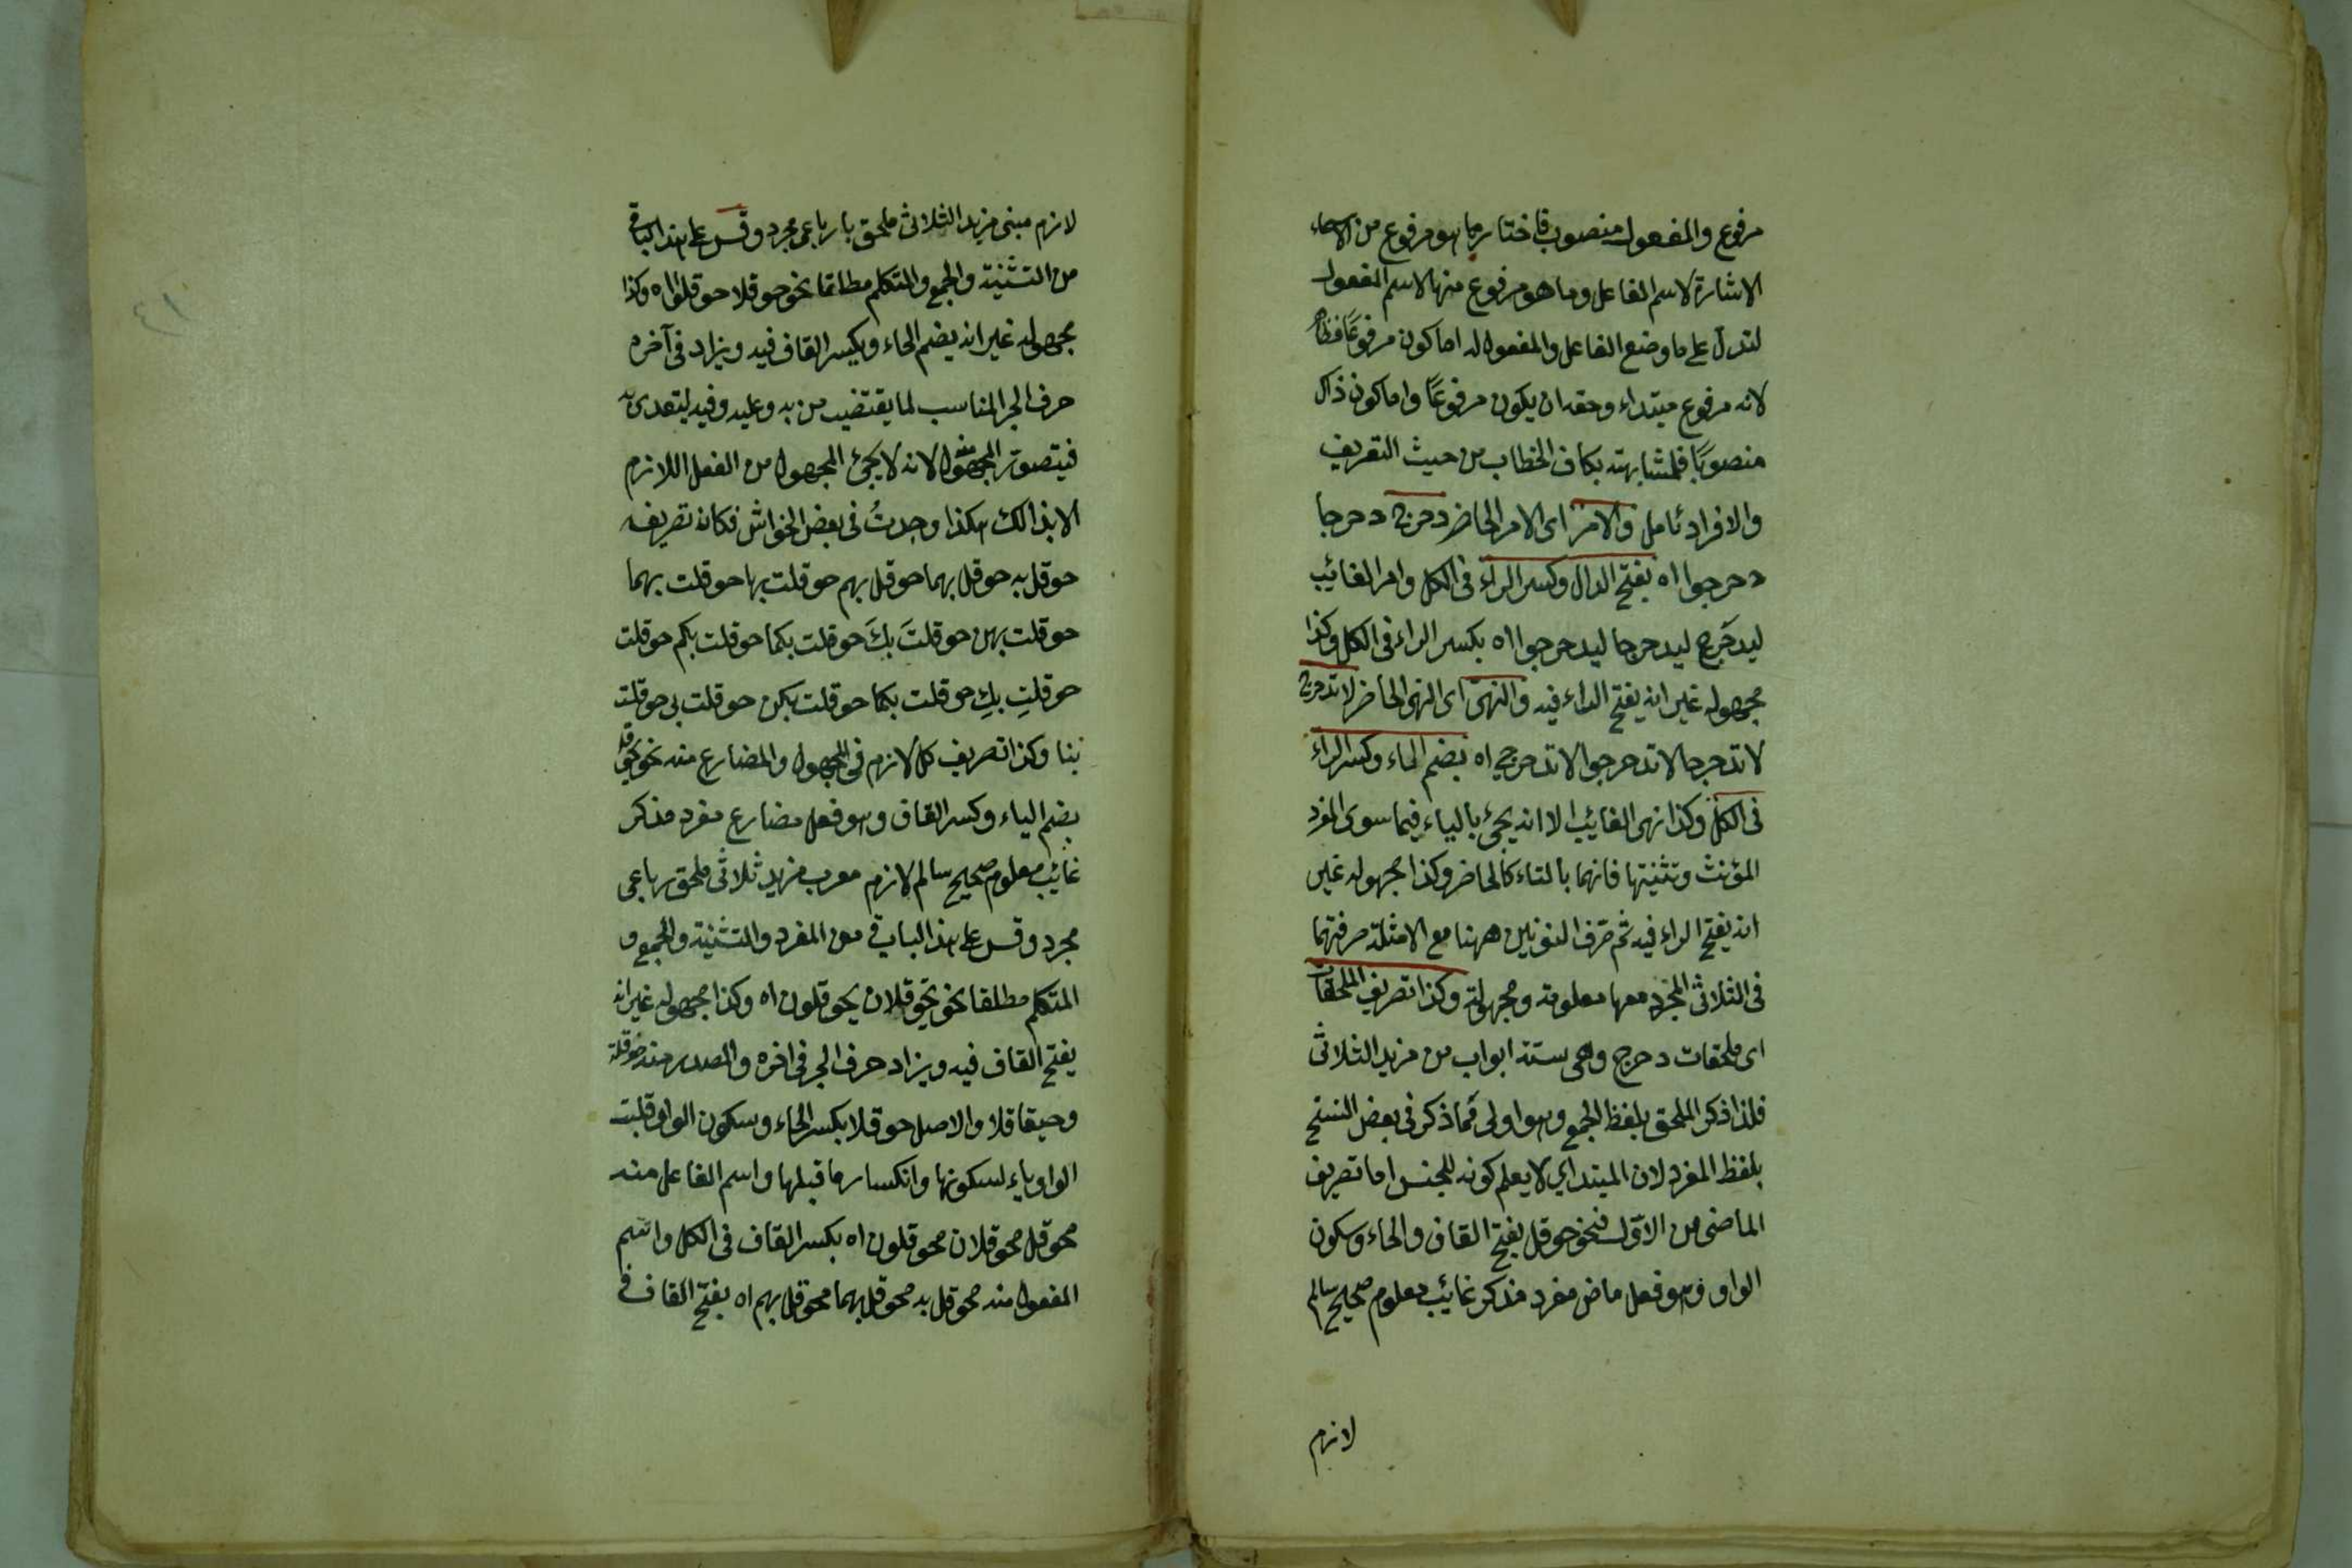 مرفوع والمفعول منصوب فاختار ما هو مرفوع من الاسماء
الاشارة لاسم الفاعل وما هو مرفوع منها لاسم المفعول
لتدل على ما وضع الفاعل والمفعول له اما كون مرفوعًا فظاهر
لانه مرفوع مبتداء وحقه ان يكون مرفوعًا واما كون ذاك
منصوبًا فلمشابهته بكاف الخطاب من حيث التعريف
والافراد تامل والامر اى الامر الحاضر دحرج دحرجا
دحرجوا اه بفتح الدال وكسر الراء فى الكل وامر الغائيب
ليدحَرج ليدحرجا ليدحرجوا اه بكسر الراء فى الكل وكذا
مجهوله غير انه يفتح الراء فيه والنهى اى النهى الحاضر لا تدحرج
لا تدحرجا لا تدحرجوا لا تدحرجي اه بضم الحاء وكسر الراء
فى الكل وكذا نهى الغائيب الا انه يجئ بالياء فيما سوى المفرد
المؤنث وتثنيتها فانهما بالتاء كالحاضر وكذا مجهوله غير
انه يفتح الراء فيه ثم صّرف النونين ههنا مع الامثلة صرفتهما
فى الثلاثى المجرد معها معلومة ومجهولة وكذا تصريف الملحقات
اى ملحقات دحرج وهى ستة ابواب من مزيد الثلاثى
فلذا ذكر الملحق بلفظ الجمع وهو اولى مّما ذكر فى بعض النسخ
بلفظ المفرد لان المبتداي لا يعلم كونه للجنس اما تصريف
الماضى من الاوّل فنحو حوقل بفتح القاف والحاء وسكون
الواو وهو فعل ماض مفرد مذكر غائيب معلوم صحيح سالم
لازم
لازم مبنى مزيد الثلاثى ملحق بارباعى مجرد وقس على هذا الباقى
من التثنية والجمع والمتكلم مطلقا نحو حوقلا حوقلوا اه وكذا
مجهوله غير انه يضم الحاء ويكسر القاف فيه ويزاد فى آخره
حرف الجر المناسب لما يقتضيه من به وعليه وفيه ليتعدى به
فيتصور المجهول منه لانه لا يجئ المجهول من الفعل اللازم
الا بذالك هكذا وجدتُ فى بعض الخواش فكان تصريفه
حوقل به حوقل بهما حوقل بهم حوقلت بها حوقلت بهما
حوقلت بهن حوقلتَ بكَ حوقلت بكما حوقلت بكم حوقلت
حوقلتِ بكِ حوقلت بكما حوقلت بكن حوقلت بى حوقلت
بنا وكذا تصريف كل لازم فى المجهول والمضارع منه نحو يحوقل
بضم الياء وكسر القاف وهو فعل مضارع مفرد مذكر
غائيب معلوم صحيح سالم لازم معرب مزيد ثلاثى ملحق رباعى
مجرد وقس على هذا الباقي من المفرد والتثنية والجمع و
المتكلم مطلقا نحو يحوقلان يحوقلون اه وكذا مجهوله غير انه
يفتح القاف فيه ويزاد حرف الجر فى اخره والمصدر منه حوقلة
وحيقا قلا والاصل حوقلا بكسر الحاء وسكون الواو قلبت
الواو ياء لسكونها وانكسار ما قبلها واسم الفاعل منه
محوقل محوقلان محوقلون اه بكسر القاف فى الكل واسم
المفعول منه محوقل به محوقل بهما محوقل بهم اه بفتح القاف فى